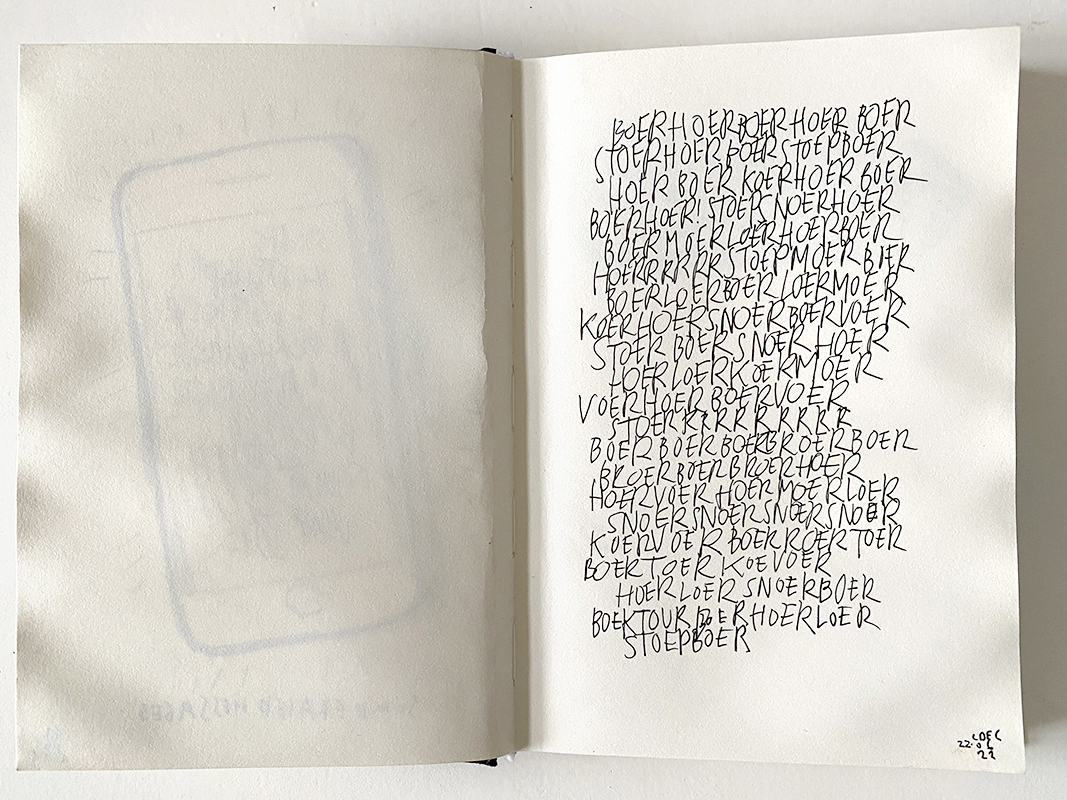 BOER HOER BOER HOER BOER
STOER HOER BOER STOEPBOER
HOER BOER KOERHOER BOER
BOERHOER! STOER SNOERHOER
BOER MOER LOERHOERBOER
HOERRRRRR STOEPMOER BOER
BOERLOERBOER LOERMOER
KOERHOERSNOERBOERVOER
STOER BOER SNOER HOER
HOER LOER KOERMOER
VOERHOERBOERVOER
STOERRRRRRRRR
BOER BOERBOERBROERBOER
BROERBOERBROERHOER
HOERVOER HOERMOERLOER
SNOERSNOERSNOERSNOER
KOERVOER BOERROERTOER
BOERTOER KOEVOER
HOERLOER SNOERBOER
BOEKTOUR BOERHOERLOER
STOEPBOER
22
22